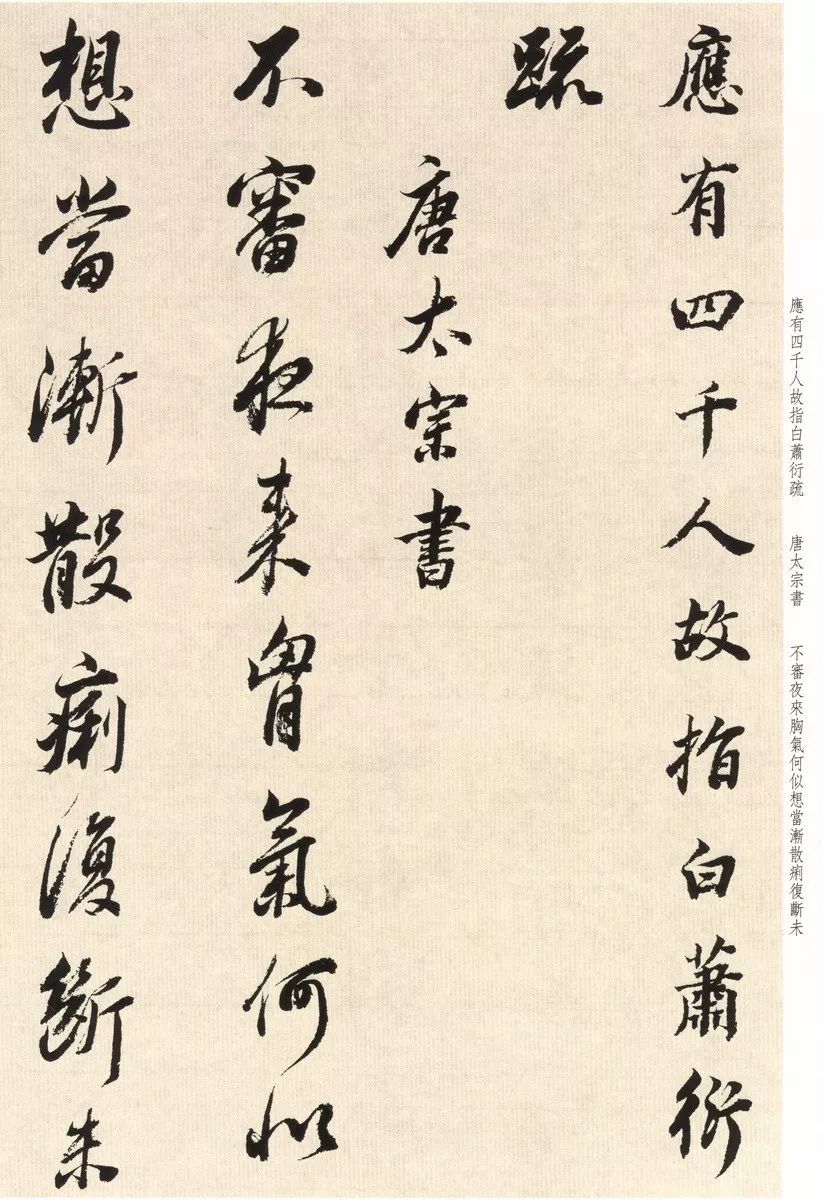 應有四千人故指白蕭衍
疏
唐太宗書
不審夜來胷氣何似
想當漸散痢復斷未
應有四千人故指白蕭衍疏 唐太宗書 不審夜來胸氣何似想當漸散痢復斷未